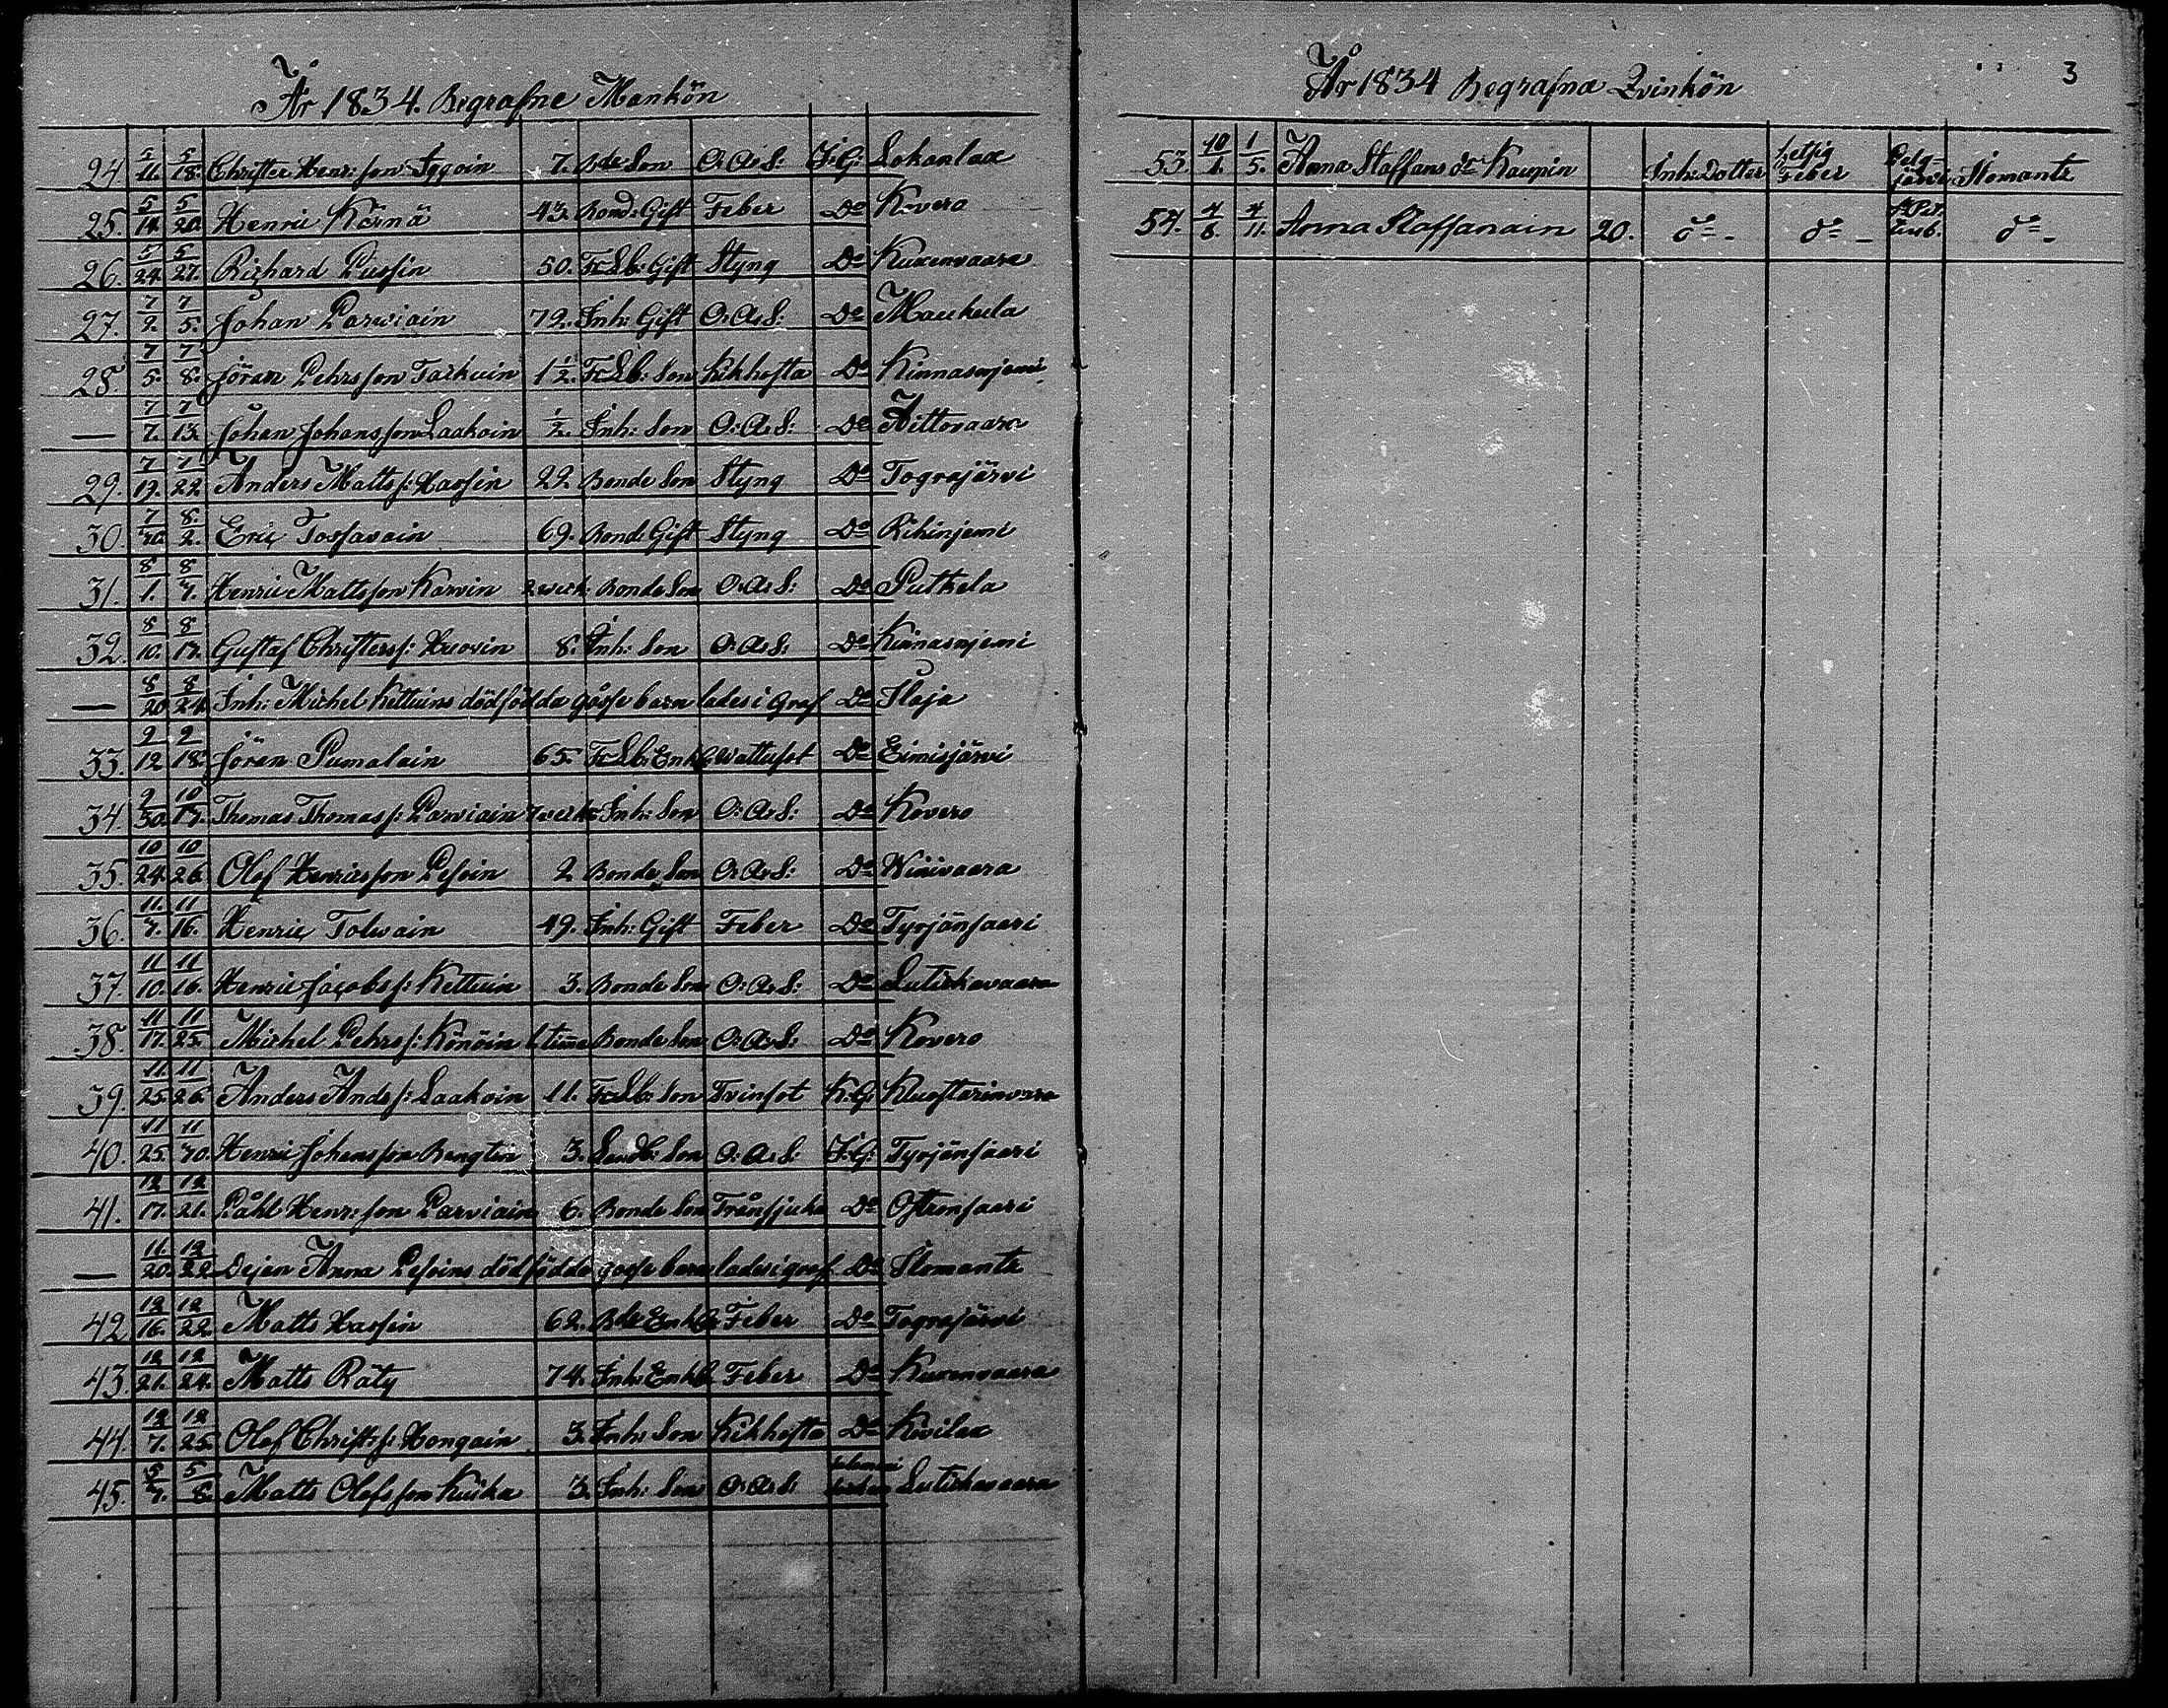 År 1834. Begrafne Mankön
24. 5/11. 5/18. Christer Henr: son Iggoin 7. Bde Son O: A: S: J: G: Lokanlax
25. 5/14. 5/20. Henric Körnä 43. Bond: Gift Feber Do Kovero
26. 5/24. 5/27. Richard Pussin 50. Gift Styng Do Kuxenvaara
27. 7/2. 7/5. Johan Parviain 72. Inh: Gift O: A: S: Do Maukula
28. 7/5. 7/8. Jöran Pehrsson Tarkuin 1 1/2. Son Kikhosta Do Kinnasnjemi
— 7/7. 7/13. Johan Johansson Laakoin 1/2. Inh: Son O: A: S: Do Hittovaara
29. 7/19. 7/22. Anders Matts s: Hassin 22. Bonde Son Styng Do Tograjärvi
30. 8/2. Eric Tossavain 69. Bond: Gift Styng Do Rihinjemi
31. 8/1. 8/7. Henric Mattsson Karvin Bonde Son O: A: S: Do Putkela
32. 8/10. 8/17. Gustaf Christers s: Huovin 8. Inh: Son O: A: S: Do Kinnasnjemi
— 8/20. 8/24. Inh: Michel Kettuins dödfödda gosse barn lades i Graf Do Ilaja
33. 9/12 9/18. Jöran Pumalain 65. Enkl: Wattusot Do Eimisjärvi
34. 9/30. 10/17. Thomas Thomas s: Parviain Inh: Son O: A: S: Do Kovero
35. 10/24. 10/26. Olof Henricsson Pesoin 2 Bonde Son O: A: S: Do Winivaara
36. 11/7. 11/16. Henric Tolvain 49. Inh: Gift Feber Do Tyrjänsaari
37. 11/10. 11/16. Henric Jacobs s: Kettuin 3. Bonde Son O: A: S: Do Lutiskavaara
38. 11/17. 11/25. Michel Pehrs s: Könöin 1. time Bonde Son O: A: S: Do Kovero
39. 11/25. 11/26. Anders Ands s: Laakoin 11. Son Tvinsot K: G: Kluostarinvaara
40. 11/25. 11/30. Henric Johansson Bengtin 3. Son O: A: S: J: G: Tyrjänsaari
41. 12/17. 12/21. Påhl Henr: son Parviain 6. Bonde Son Trånsjuka Do Oftronsaari
— 11/20. 12/22. Dejan Anna Pesoins dödfödda gosse barn lades i graf Do Ilomants
42. 12/16. 12/22. Matts Hassin 62. Bde Enkl: Feber Do Tograjärvi
43. 12/21. 12/24. Matts Räty 74. Inh: Enkl: Feber Do Kuxenvaara
44. 12/7. 12/25. Olof Christ s: Hongain 3. Inh: Son Kikhosta Do Kivilax
45. 5/7. 5/8. Matts Olofsson Kuika 3. Inh: Son O: A: S: Lutiskavaara
År 1834 Begrafna Qvinkön 3
53. 10/1. 1/5. Anna Staffans dr Kaupin Inh: Dotter hetsig Feber Pelgjärvi Ilomants
54. 4/8. 4/11. Anna Staffanain 20. do - do - St Pet. do -